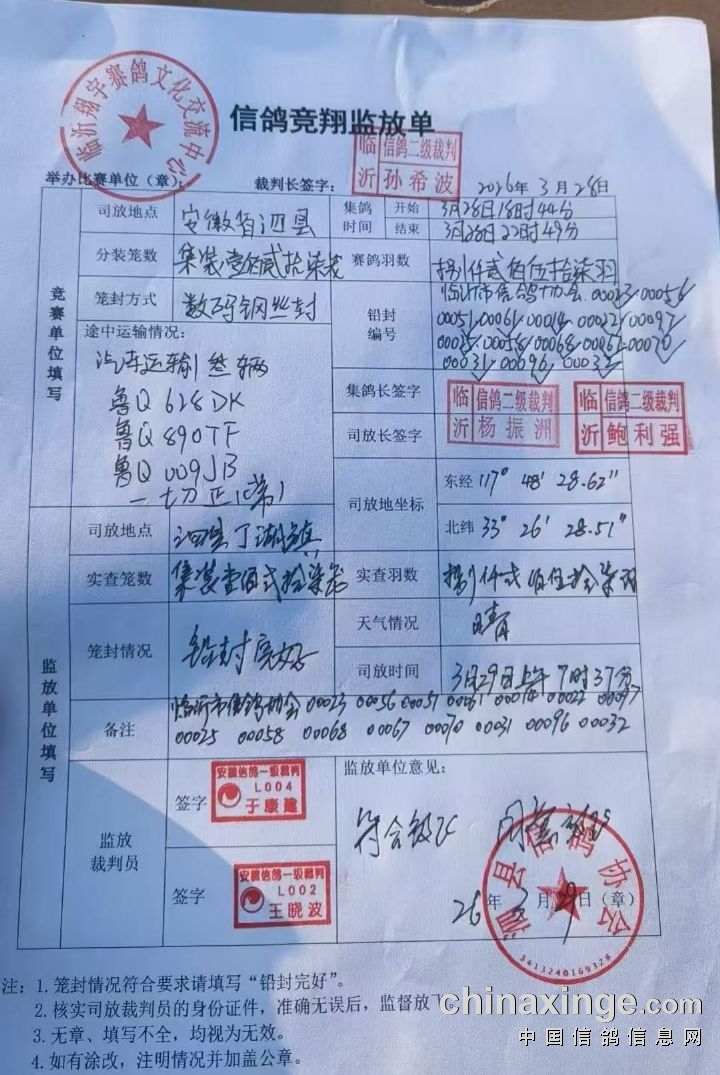 信鸽竞翔监放单
临沂翔宇赛鸽文化交流中心
举办比赛单位（章）：
裁判长签字：
临沂 信鸽二级裁判 孙希波
2026年3月28日
竞赛单位填写
司放地点 安徽省泗县
集鸽时间 开始 3月28日18时44分
结束 3月28日22时49分
分装笼数 集装壹佰贰拾柒笼
赛鸽羽数 捌仟贰佰伍拾柒羽
笼封方式 数码钢丝封
铅封编号 临沂市信鸽协会 00023 00056
00051 00061 00014 00022 00097
00025 00058 00068 00067 00070
00031 00096 00032
途中运输情况：
汽车运输 叁辆
鲁Q 628DK
鲁Q 890TF
鲁Q 009JB
一切正常
集鸽长签字 临沂 信鸽二级裁判 杨振洲
司放长签字 临沂 信鸽二级裁判 鲍利强
司放地坐标 东经 117° 48' 28.62"
北纬 33° 26' 28.51"
监放单位填写
司放地点 泗县丁湖镇
实查笼数 集装壹佰贰拾柒笼
实查羽数 捌仟贰佰伍拾柒羽
笼封情况 铅封完好
天气情况 晴
司放时间 3月29日上午7时37分
备注 临沂市信鸽协会 00023 00056 00051 00061 00014 00022 00097
00025 00058 00068 00067 00070 00031 00096 00032
监放裁判员
签字 安徽信鸽一级裁判 L004 于康建
签字 安徽信鸽一级裁判 L002 王晓波
监放单位意见：
符合放飞
泗县信鸽协会
26年3月29日（章）
3413240169378
注：1.笼封情况符合要求请填写“铅封完好”。
2.核实司放裁判员的身份证件，准确无误后，监督放
3.无章、填写不全，均视为无效。
4.如有涂改，注明情况并加盖公章。
chinaxinge.com
中国信鸽信息网